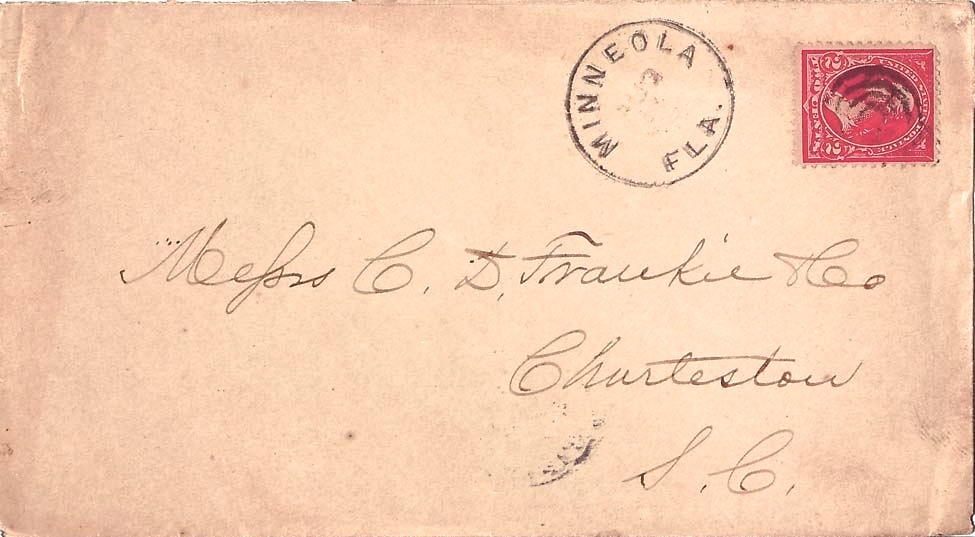 MINNEOLA
FLA.
UNITED STATES POSTAGE
2 CENTS 2
Messrs C. D. Frankie & Co
Charleston
S. C.